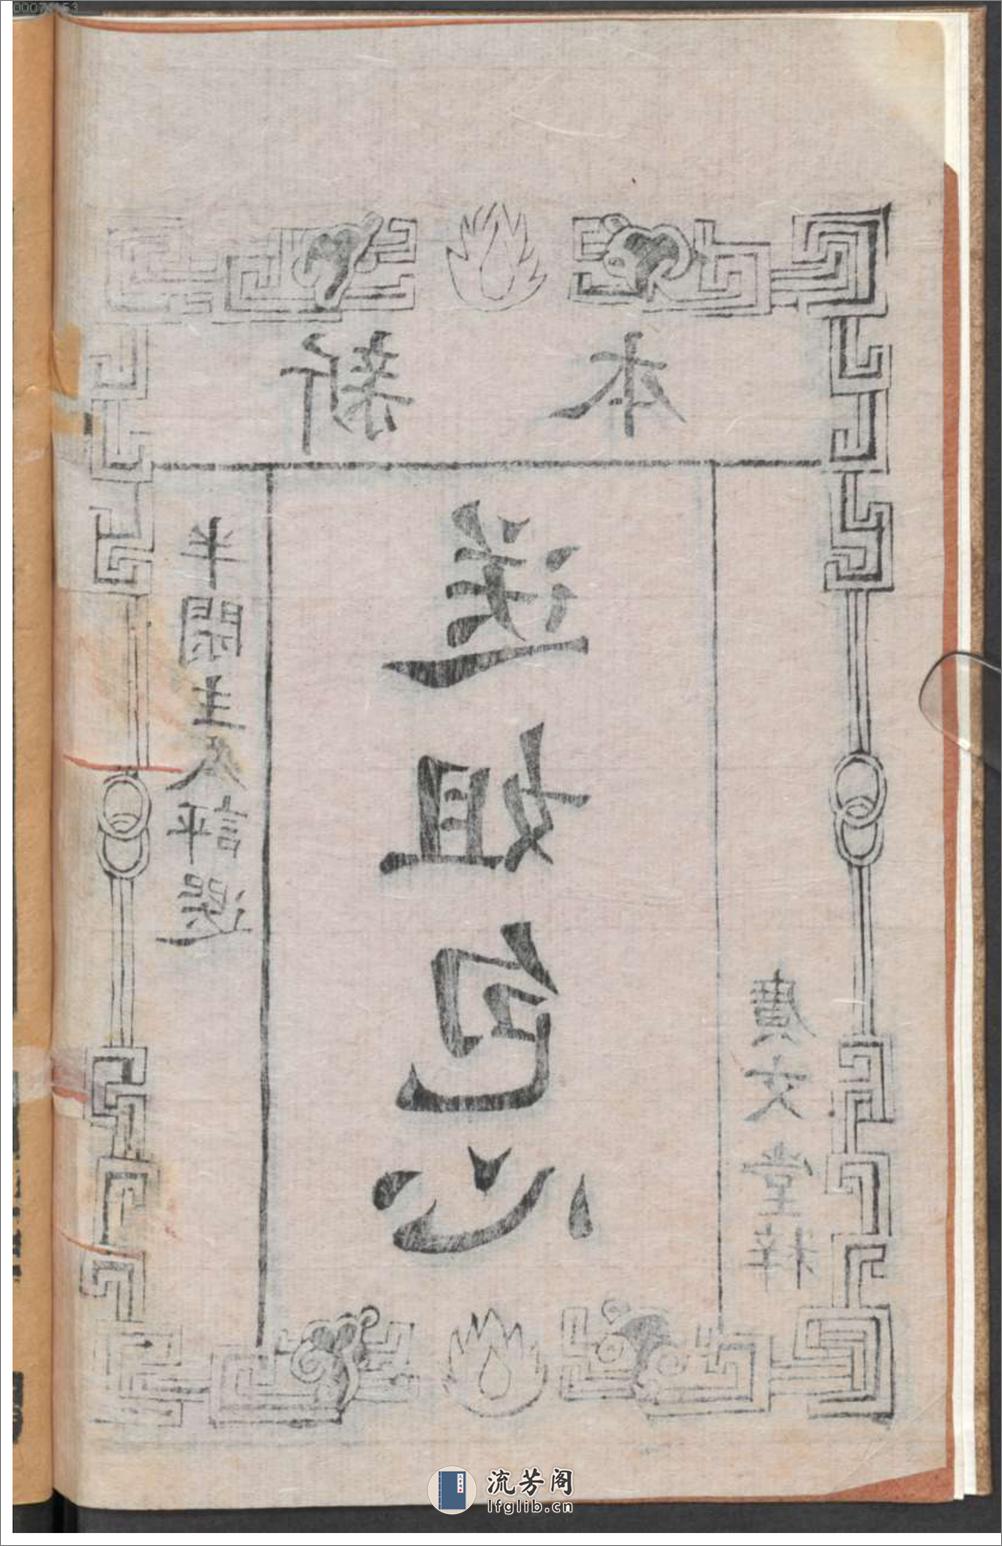 新本
半悶主人評選
送姐包心
廣文堂梓
流芳阁
lfglib.cn